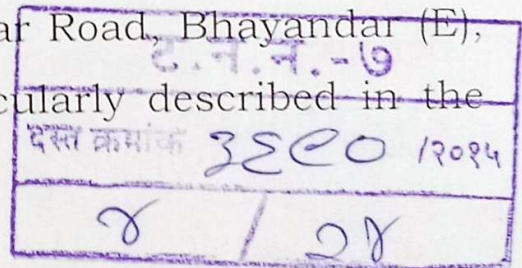 ar Road, Bhayandar (E),
ट.न.न.-७
cularly described in the
दस्त क्रमांक ३६९० /२०१५
४ / २४